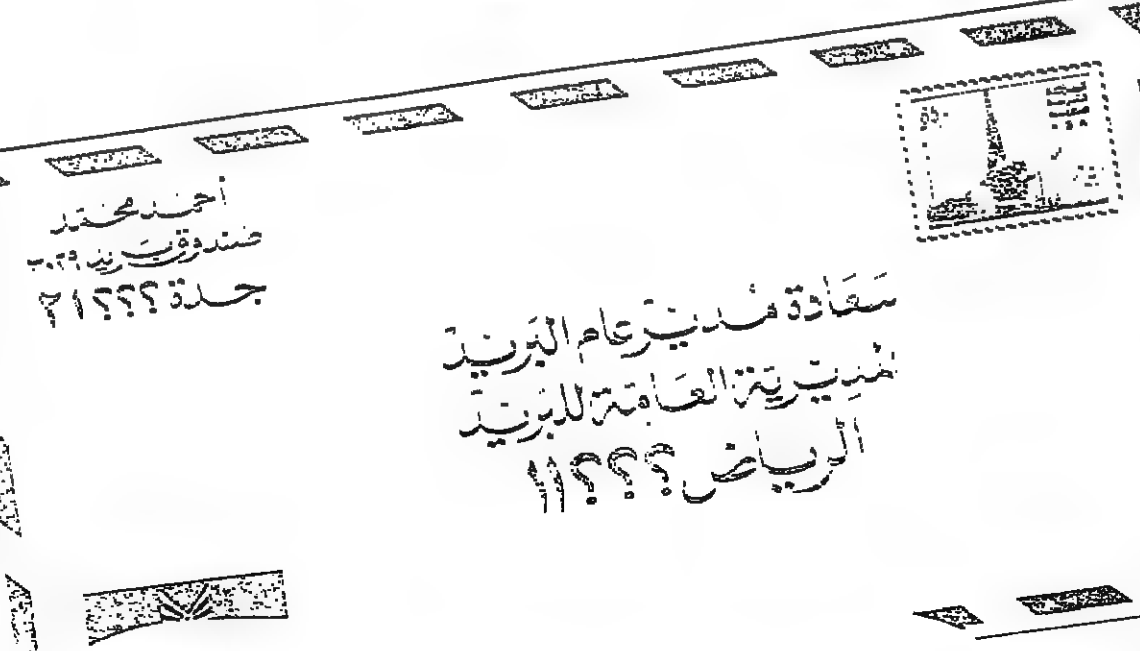 أحمد محمد
صندوق بريد
جدة ؟؟؟٢١
سعادة مدير عام البريد
المديرية العامة للبريد
الرياض ؟؟؟١١